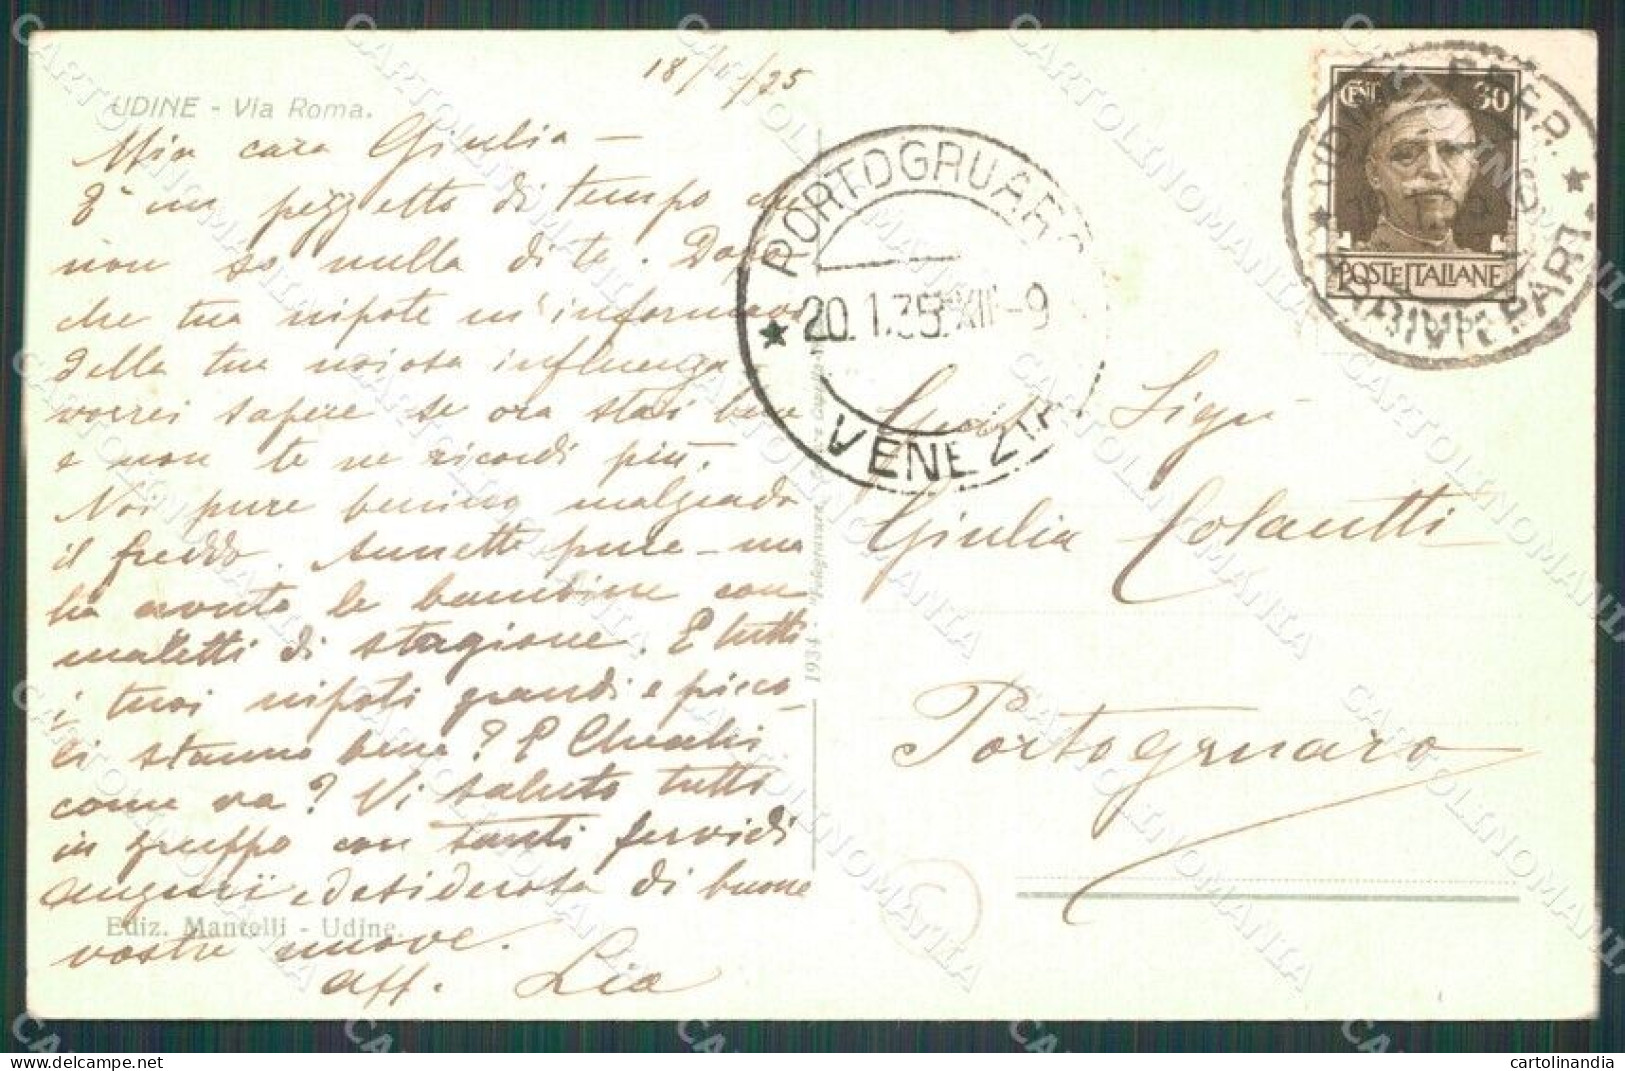 18/1/35
UDINE - Via Roma.
Mia cara Giulia -
È un pezzetto di tempo che
non so nulla di te. Dopo
che tuo nipote m'informava
della tua noiosa influenza
vorrei sapere se ora stai bene
e non te ne ricordi più.
Noi pure benino malgrado
il freddo. Annetta pure - ma
ha avuto le bambine con
maletti di stagione. E tutti
i tuoi nipoti grandi e picco-
li stanno bene? E
come va? Vi saluto tutti
in gruppo con tanti fervidi
auguri, desiderosa di buone
Ediz. Mantelli - Udine.
vostre nuove.
aff. Lia
1934
PORTOGRUARO
20.1.35.XIII-9
VENEZIA
UDINE FERR.
ARRIVI E PART.
CENT 30
POSTE ITALIANE
Sigra
Giulia Colautti
Portogruaro
C
CARTOLINOMANIA
cartolinandia